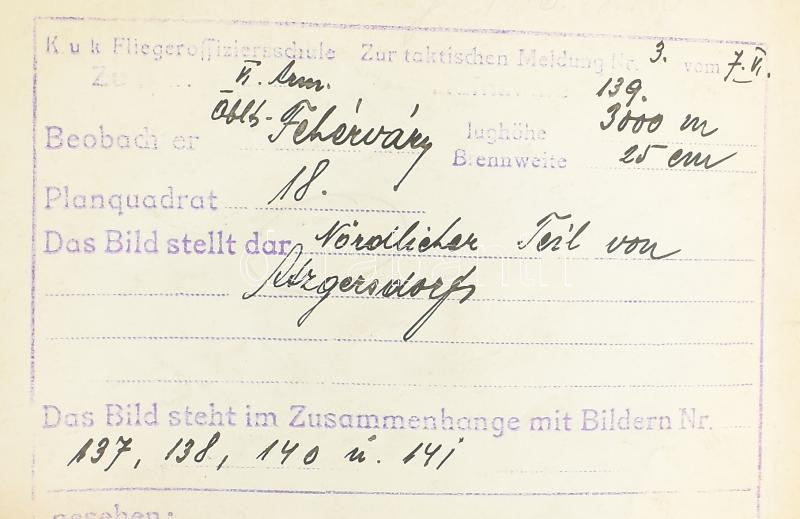 K u k Fliegeroffiziersschule Zur taktischen Meldung Nr. 3. vom 7. VI.
VI. Arm. 139.
Beobach er Oblt. Fehérváry lughöhe 3000 m
Brennweite 25 cm
Planquadrat 18.
Das Bild stellt dar Nördlicher Teil von
Atzgersdorf
Das Bild steht im Zusammenhange mit Bildern Nr.
137, 138, 140 u. 141
gesehen: